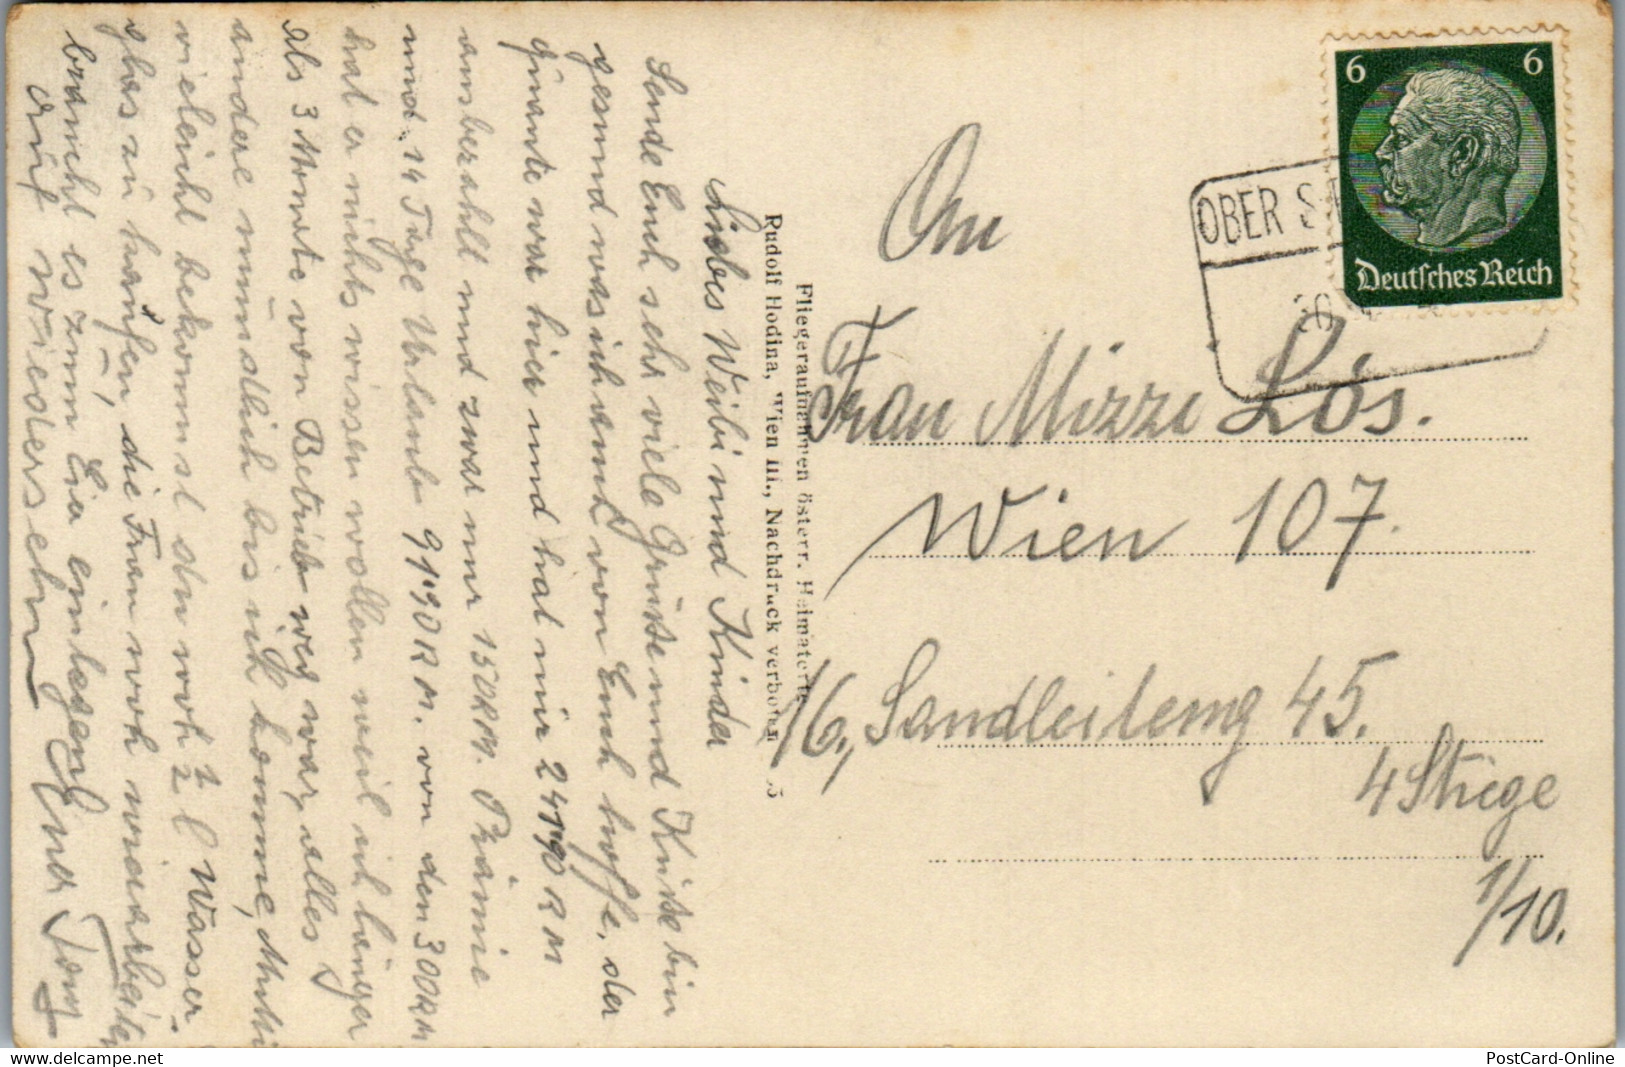 Liebes Weibi und Kinder
Sende Euch sehr viele Grüsse und Küsse bin
gesund was ich auch von Euch hoffe, der
war hier und hat mir 241'90 RM
ausbezahlt und zwar nur 150 RM. Prämie
und 14 Tage Urlaub 91'90 RM. von den 300 RM
hat er nichts wissen wollen weil ich länger
als 3 Monate von Betrieb weg war, alles
andere mündlich bis ich komme, Mutti
vieleicht bekommst du noch 2 l Wasser
glas zu kaufen, die Frau noch
braucht es zum Eier einlegen.
auf Wiedersehn Euer
Fliegeraufnahmen österr. Heimatorte
Rudolf Hodina, Wien III., Nachdruck verboten
6 6
Deutsches Reich
OBER S
An
Frau Mizzi Lös.
Wien 107.
16., Sandleiteng 45.
4 Stiege
1/10.
delcampe.net
PostCard-Online